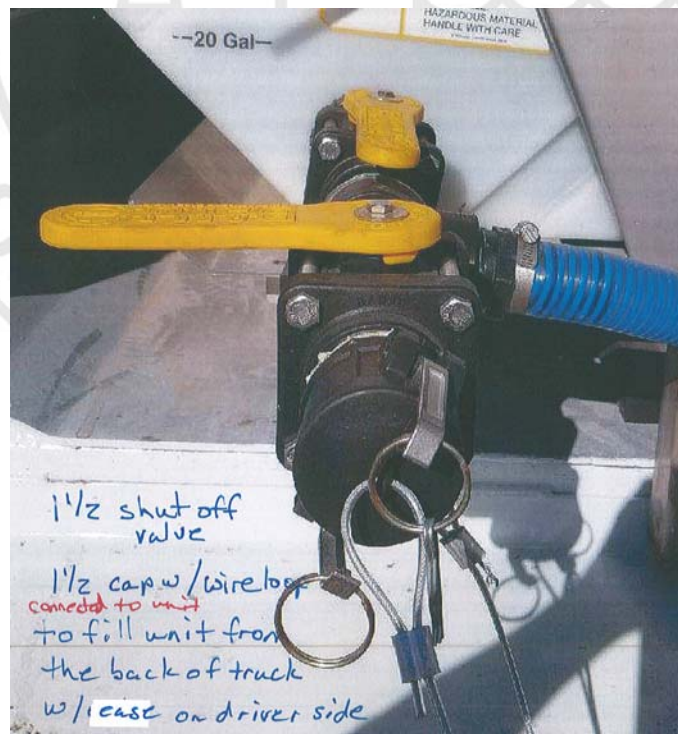 HAZARDOUS MATERIAL
HANDLE WITH CARE
--20 Gal—
1 1/2 shut off
valve
1 1/2 cap w/wire loop
connected to unit
to fill unit from
the back of truck
w/ ease on driver side